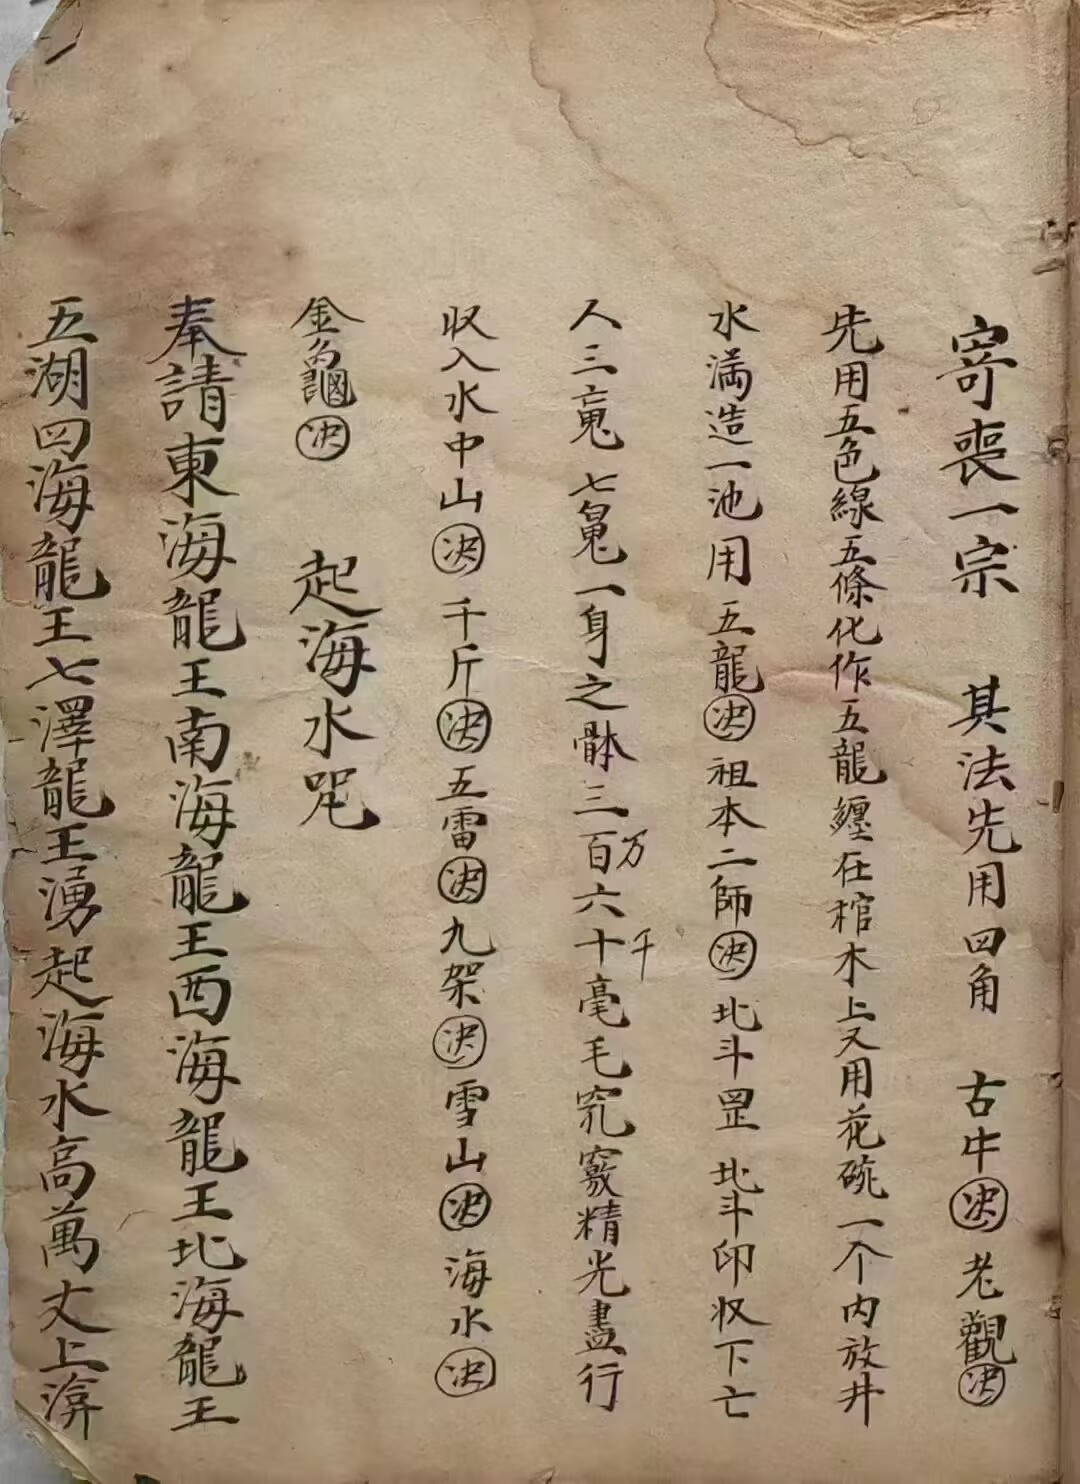 寄喪一宗 其法先用四角 古牛決老觀決
先用五色線五條化作五龍纏在棺木上又用花碗一个内放井
水滿造一池用五龍決祖本二師決北斗罡北斗印收下亡
人三䰟七䰟一身之骵三百万六十千毫毛竅精光盡行
收入水中山決千斤決五雷決九架決雪山決海水決
金龜決 起海水咒
奉請東海龍王南海龍王西海龍王北海龍王
五湖四海龍王七澤龍王湧起海水高萬丈上